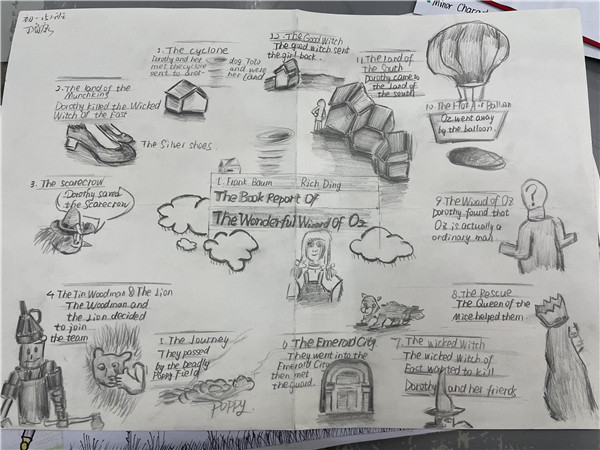 Minor Chara
初一
L. Frank Baum Rich Ding
The Book Report Of
The Wonderful Wizard Of Oz
1. The cyclone
Dorothy and her dog Toto
met the cyclone and were
sent to her Land
2. The land of the
Munchking
Dorothy killed the Wicked
Witch of the East
The Silver shoes.
3. The scarecrow
Dorothy saved
the scarecrow
4. The Tin Woodman & The Lion
The Woodman and
the Lion decided
to join
the team
5. The Journey
They passed
by the deadly
Poppy Field
POPPY
6. The Emerald City
They went into the
Emerald City
then met
the guard.
7. The wicked Witch
The wicked witch of
East wanted to kill
Dorothy and her friends
8. The Rescue
The Queen of the
Mice helped them.
9. The Wizard of Oz
Dorothy found that
Oz is actually a
ordinary man
?
10. The Hot Air Ballon
Oz went away
by the balloon.
11. The land of
the South
Dorothy came to
the land of
the south
12. The Good Witch
The good witch sent
the girl back.